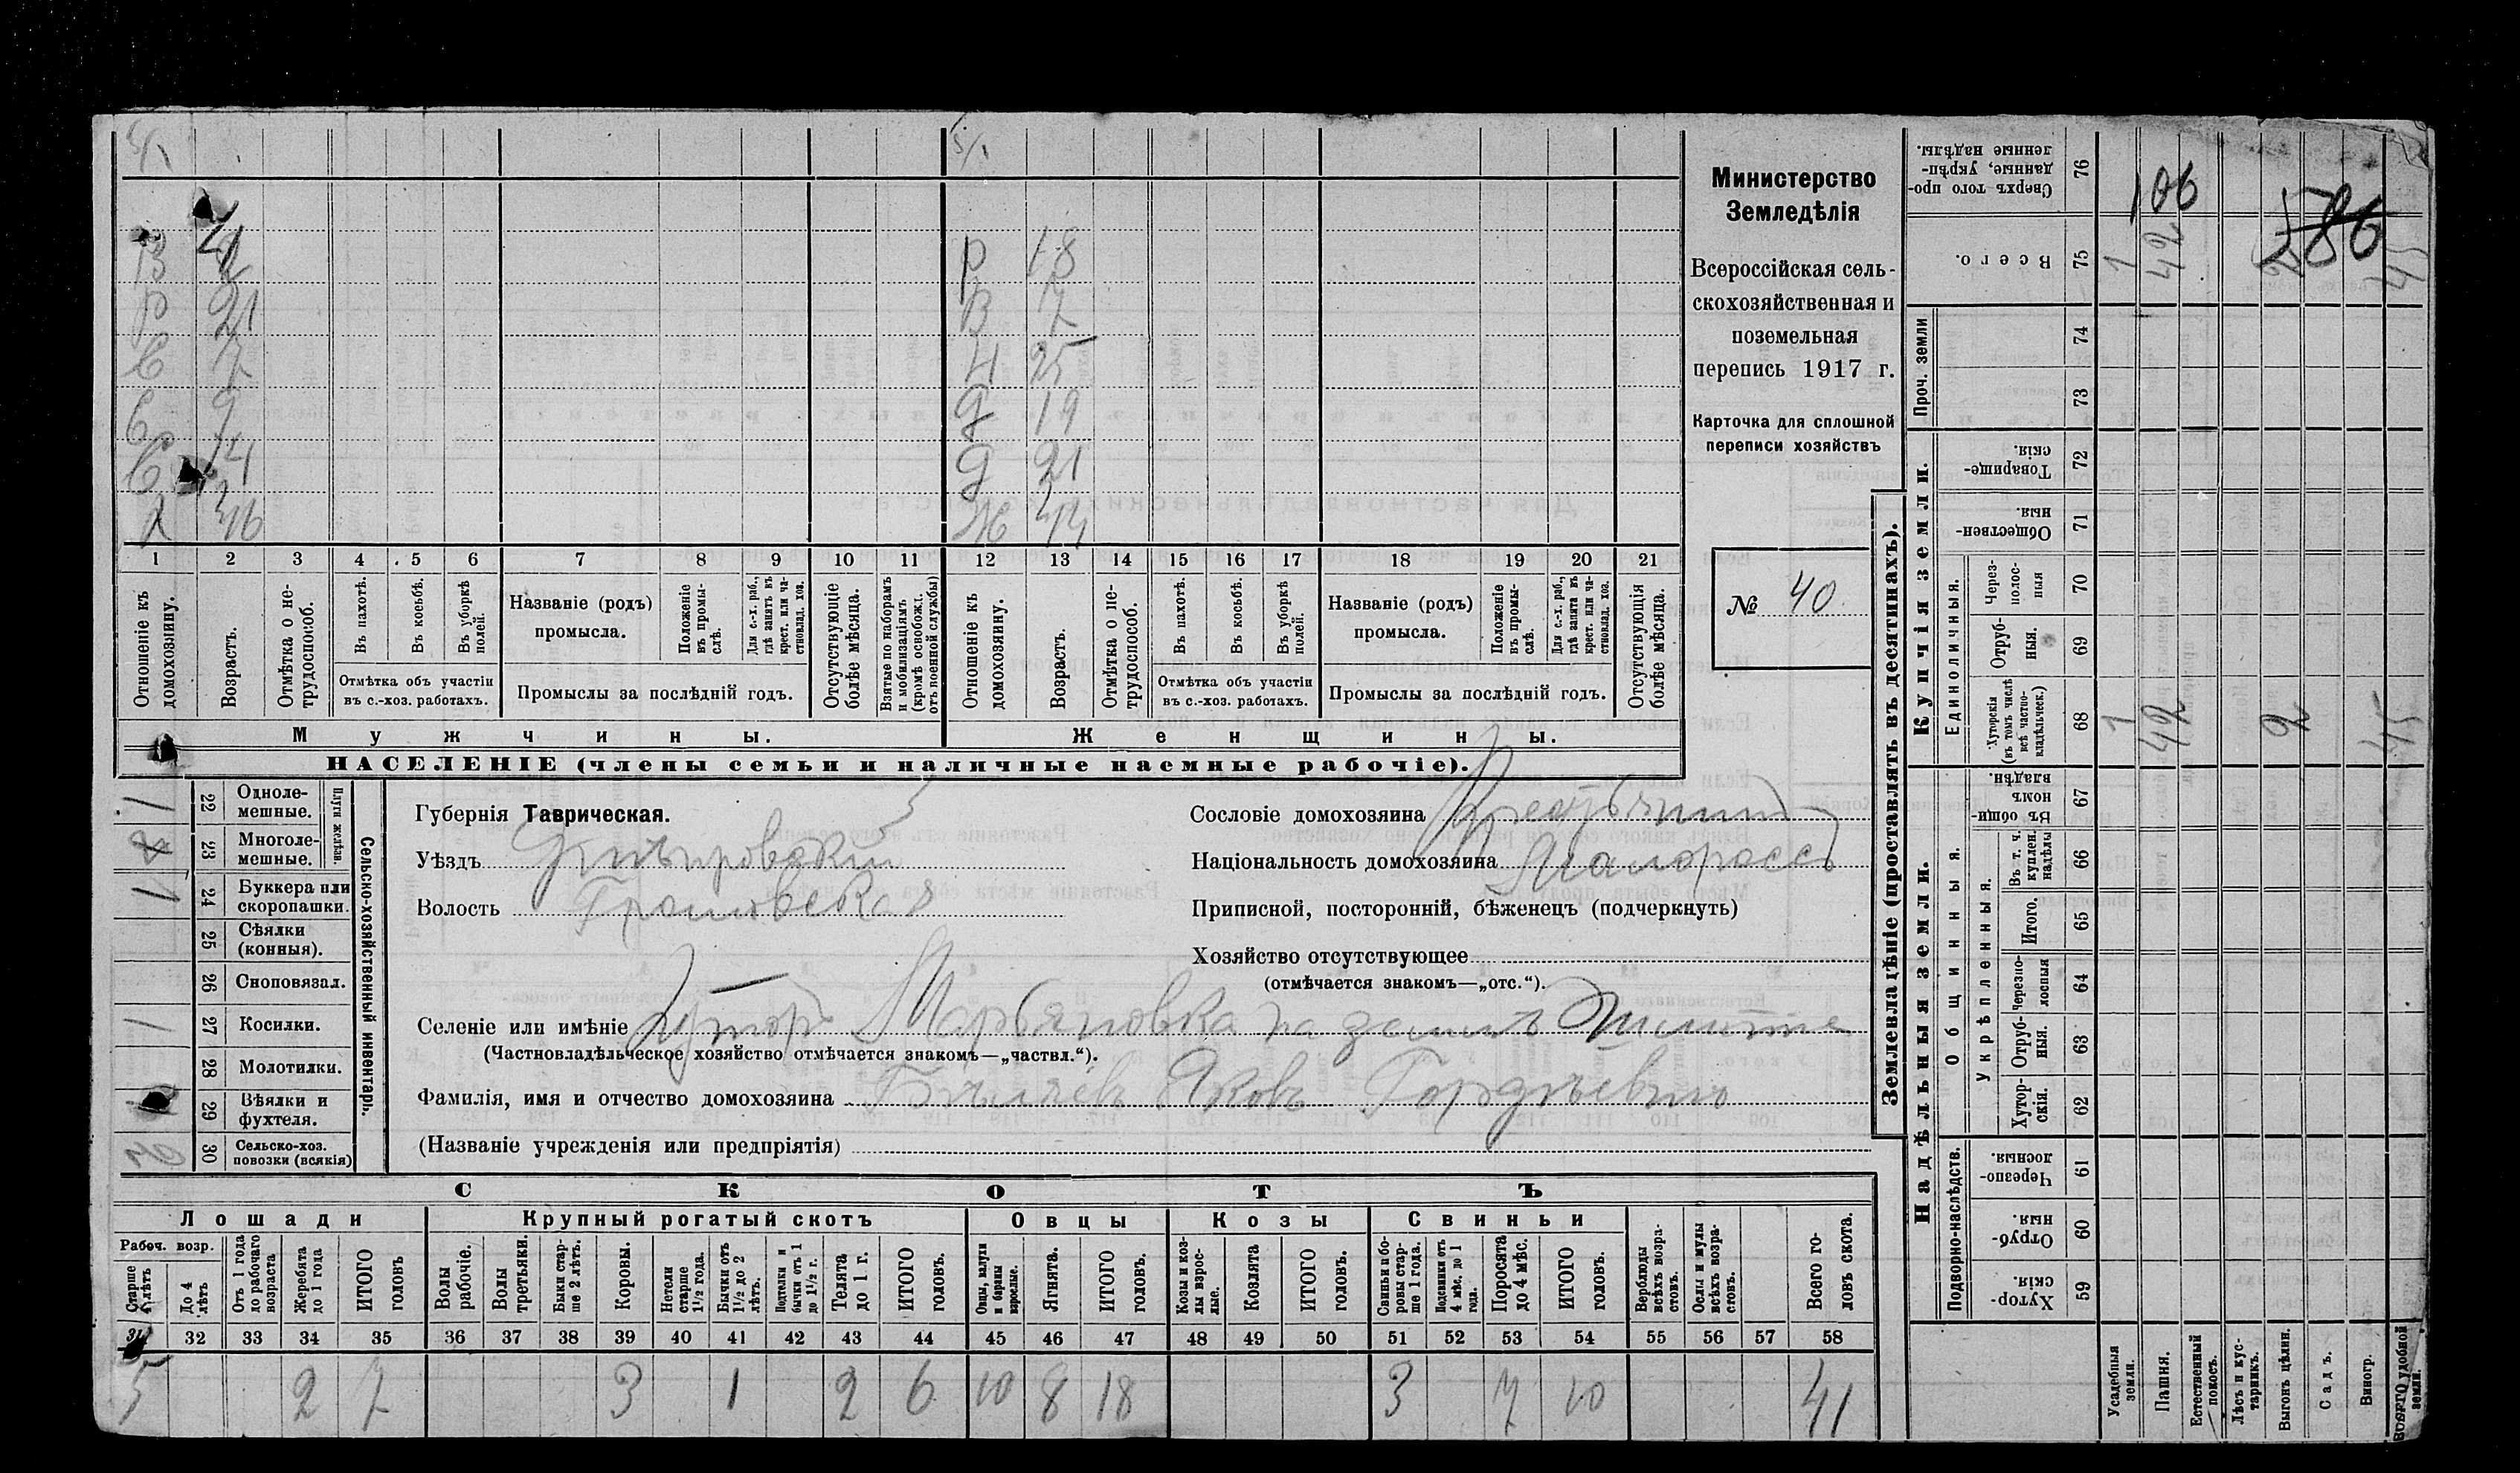 5/1 5/1
В 4
Р 21 Р 18
С 7 В 7
С 9 Н 25
С 14 Д 19
Д 21
Х 46 Ж 44
1 2 3 4 5 6 7 8 9 10 11 12 13 14 15 16 17 18 19 20 21
Отношеніе къ домохозяину.
Возрастъ.
Отмѣтка о не-трудоспособ.
Въ пахотѣ.
Въ косьбѣ.
Въ уборкѣ полей.
Отмѣтка объ участіи
въ с.-хоз. работахъ.
Названіе (родъ)
промысла.
Положеніе въ промы-слѣ.
Для с.-х. раб., гдѣ занятъ въ крест. или ча-стновлад. хоз.
Промыслы за послѣдній годъ.
Отсутствующіе болѣе мѣсяца.
Взятые по наборамъ и мобилизаціямъ (кромѣ освобожд. отъ военной службы)
Отношеніе къ домохозяину.
Возрастъ.
Отмѣтка о не-трудоспособ.
Въ пахотѣ.
Въ косьбѣ.
Въ уборкѣ полей.
Отмѣтка объ участіи
въ с.-хоз. работахъ.
Названіе (родъ)
промысла.
Положеніе въ промы-слѣ.
Для с.-х. раб., гдѣ занята въ крест. или ча-стновлад. хоз.
Промыслы за послѣдній годъ.
Отсутствующія болѣе мѣсяца.
Мужчины. Женщины.
НАСЕЛЕНІЕ (члены семьи и наличные наемные рабочіе).
Министерство
Земледѣлія
Всероссійская сель-
скохозяйственная и
поземельная
перепись 1917 г.
Карточка для сплошной
переписи хозяйствъ
№ 40
1 22 Однолемешные.
23 Многолемешные.
Плуги желѣзн.
1 24 Буккера или скоропашки.
25 Сѣялки (конныя).
26 Сноповязал.
1 27 Косилки.
28 Молотилки.
29 Вѣялки и фухтеля.
2 30 Сельско-хоз. повозки (всякія)
Сельско-хозяйственный инвентарь.
Губернія Таврическая.
Уѣздъ Днѣпровскій
Волость Громовская
Сословіе домохозяина Крестьянинъ
Національность домохозяина Малороссъ
Приписной, посторонній, бѣженецъ (подчеркнуть)
Хозяйство отсутствующее
(отмѣчается знакомъ—„отс.“).
Селеніе или имѣніе хуторъ Марьяновка на землѣ
(Частновладѣльческое хозяйство отмѣчается знакомъ—„частвл.“).
Фамилія, имя и отчество домохозяина Бѣляевъ Яковъ Гордѣевичъ
(Названіе учрежденія или предпріятія)
СКОТЪ
Лошади Крупный рогатый скотъ Овцы Козы Свиньи
Рабоч. возр.
Старше 4 лѣтъ
До 4 лѣтъ
Отъ 1 года до рабочаго возраста
Жеребята до 1 года
ИТОГО головъ
Волы рабочіе.
Волы третьяки.
Быки стар-ше 2 лѣтъ.
Коровы.
Нетели старше 1½ года.
Бычки отъ 1½ до 2 лѣтъ.
Подтелки и бычки отъ 1 до 1½ г.
Телята до 1 г.
ИТОГО головъ.
Овцы, валухи и бараны взрослые.
Ягнята.
ИТОГО головъ.
Козы и коз-лы взрос-лые.
Козлята
ИТОГО головъ.
Свиньи бо-ровы стар-ше 1 года.
Подсвинки отъ 4 мѣс. до 1 года.
Поросята до 4 мѣс.
ИТОГО головъ.
Верблюды всѣхъ возра-стовъ.
Ослы и мулы всѣхъ возра-стовъ.
Всего го-ловъ скота.
31 32 33 34 35 36 37 38 39 40 41 42 43 44 45 46 47 48 49 50 51 52 53 54 55 56 57 58
5 2 7 3 1 2 6 10 8 18 3 7 10 41
Землевладѣніе (проставлять въ десятинахъ).
Надѣльныя земли. Купчія земли.
Проч. земли
Подворно-наслѣдств.
Общинныя.
Укрѣпленныя.
Единоличныя.
76 Сверхъ того про-данные, укрѣп-ленные надѣлы.
75 Всего. 1 42 2 45
74
73
72 Товарище-скія.
71 Обществен-ныя.
70 Через-полос-ныя
69 Отруб-ныя.
68 Хуторскія (въ томъ числѣ всѣ частно-владѣльческ.) 1 42 2 45
67 Въ общин-номъ владѣн.
66 Въ т. ч. куплен. надѣлы
65 Итого.
64 Черезпо-лосныя
63 Отруб-ныя.
62 Хутор-скія.
61 Черезпо-лосныя.
60 Отруб-ныя.
59 Хутор-скія.
106
Усадебныя земли.
Пашня.
Естественный покосъ.
Лѣсъ и кус-тарникъ.
Выгонъ цѣлин.
Садъ.
Виногр.
Всего удобной земли.